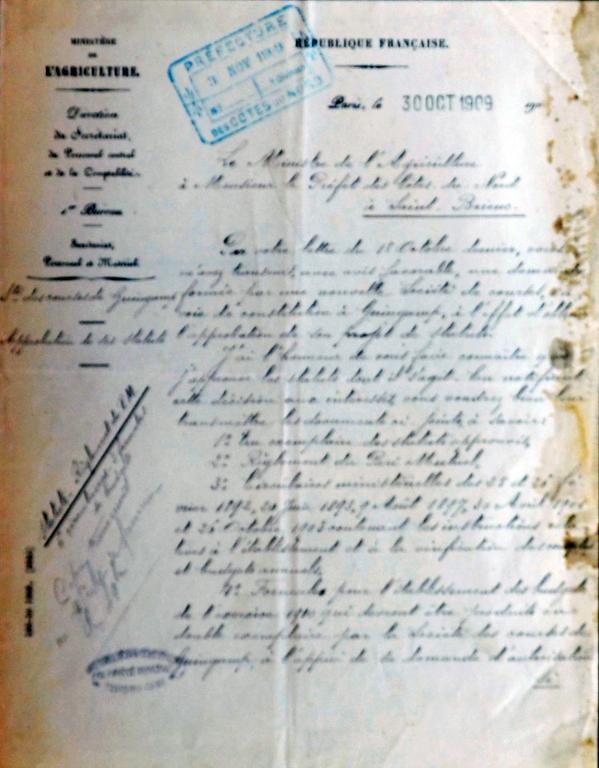 MINISTÈRE
DE
L'AGRICULTURE.
Direction
du Secrétariat,
du Personnel central
et de la Comptabilité.
1er Bureau
Secrétariat,
Personnel et Matériel.
Sté des courses de Guingamp
Approbation de ses statuts
PRÉFECTURE
3 NOV 1909
DES CÔTES-DU-NORD
RÉPUBLIQUE FRANÇAISE.
Paris, le 30 OCT 1909
Le Ministre de l'Agriculture
à Monsieur le Préfet des Côtes du Nord
à Saint-Brieuc.
Par votre lettre du 18 Octobre dernier, vous
m'avez transmis, avec avis favorable, une demande
formée par une nouvelle Société de courses, en
voie de constitution à Guingamp, à l'effet d'obtenir
l'approbation de son projet de statuts.
J'ai l'honneur de vous faire connaître que
j'approuve les statuts dont il s'agit. En notifiant
cette décision aux intéressés, vous voudrez bien leur
transmettre les documents ci-joints, à savoir:
1° Un exemplaire des statuts approuvés,
2° Règlement du Pari Mutuel,
3° Circulaires ministérielles des 25 et 26 fé
vrier 1892, 20 Juin 1893, 9 Août 1897, 30 Avril
et 26 Octobre 1903 contenant les instructions rela
tives à l'établissement et à la vérification des comptes
et budgets annuels,
4° Formules pour l'établissement des budgets
de l'exercice 1910 qui devront être produits en
double exemplaire par la Société des courses de
Guingamp, à l'appui de sa demande d'autorisation